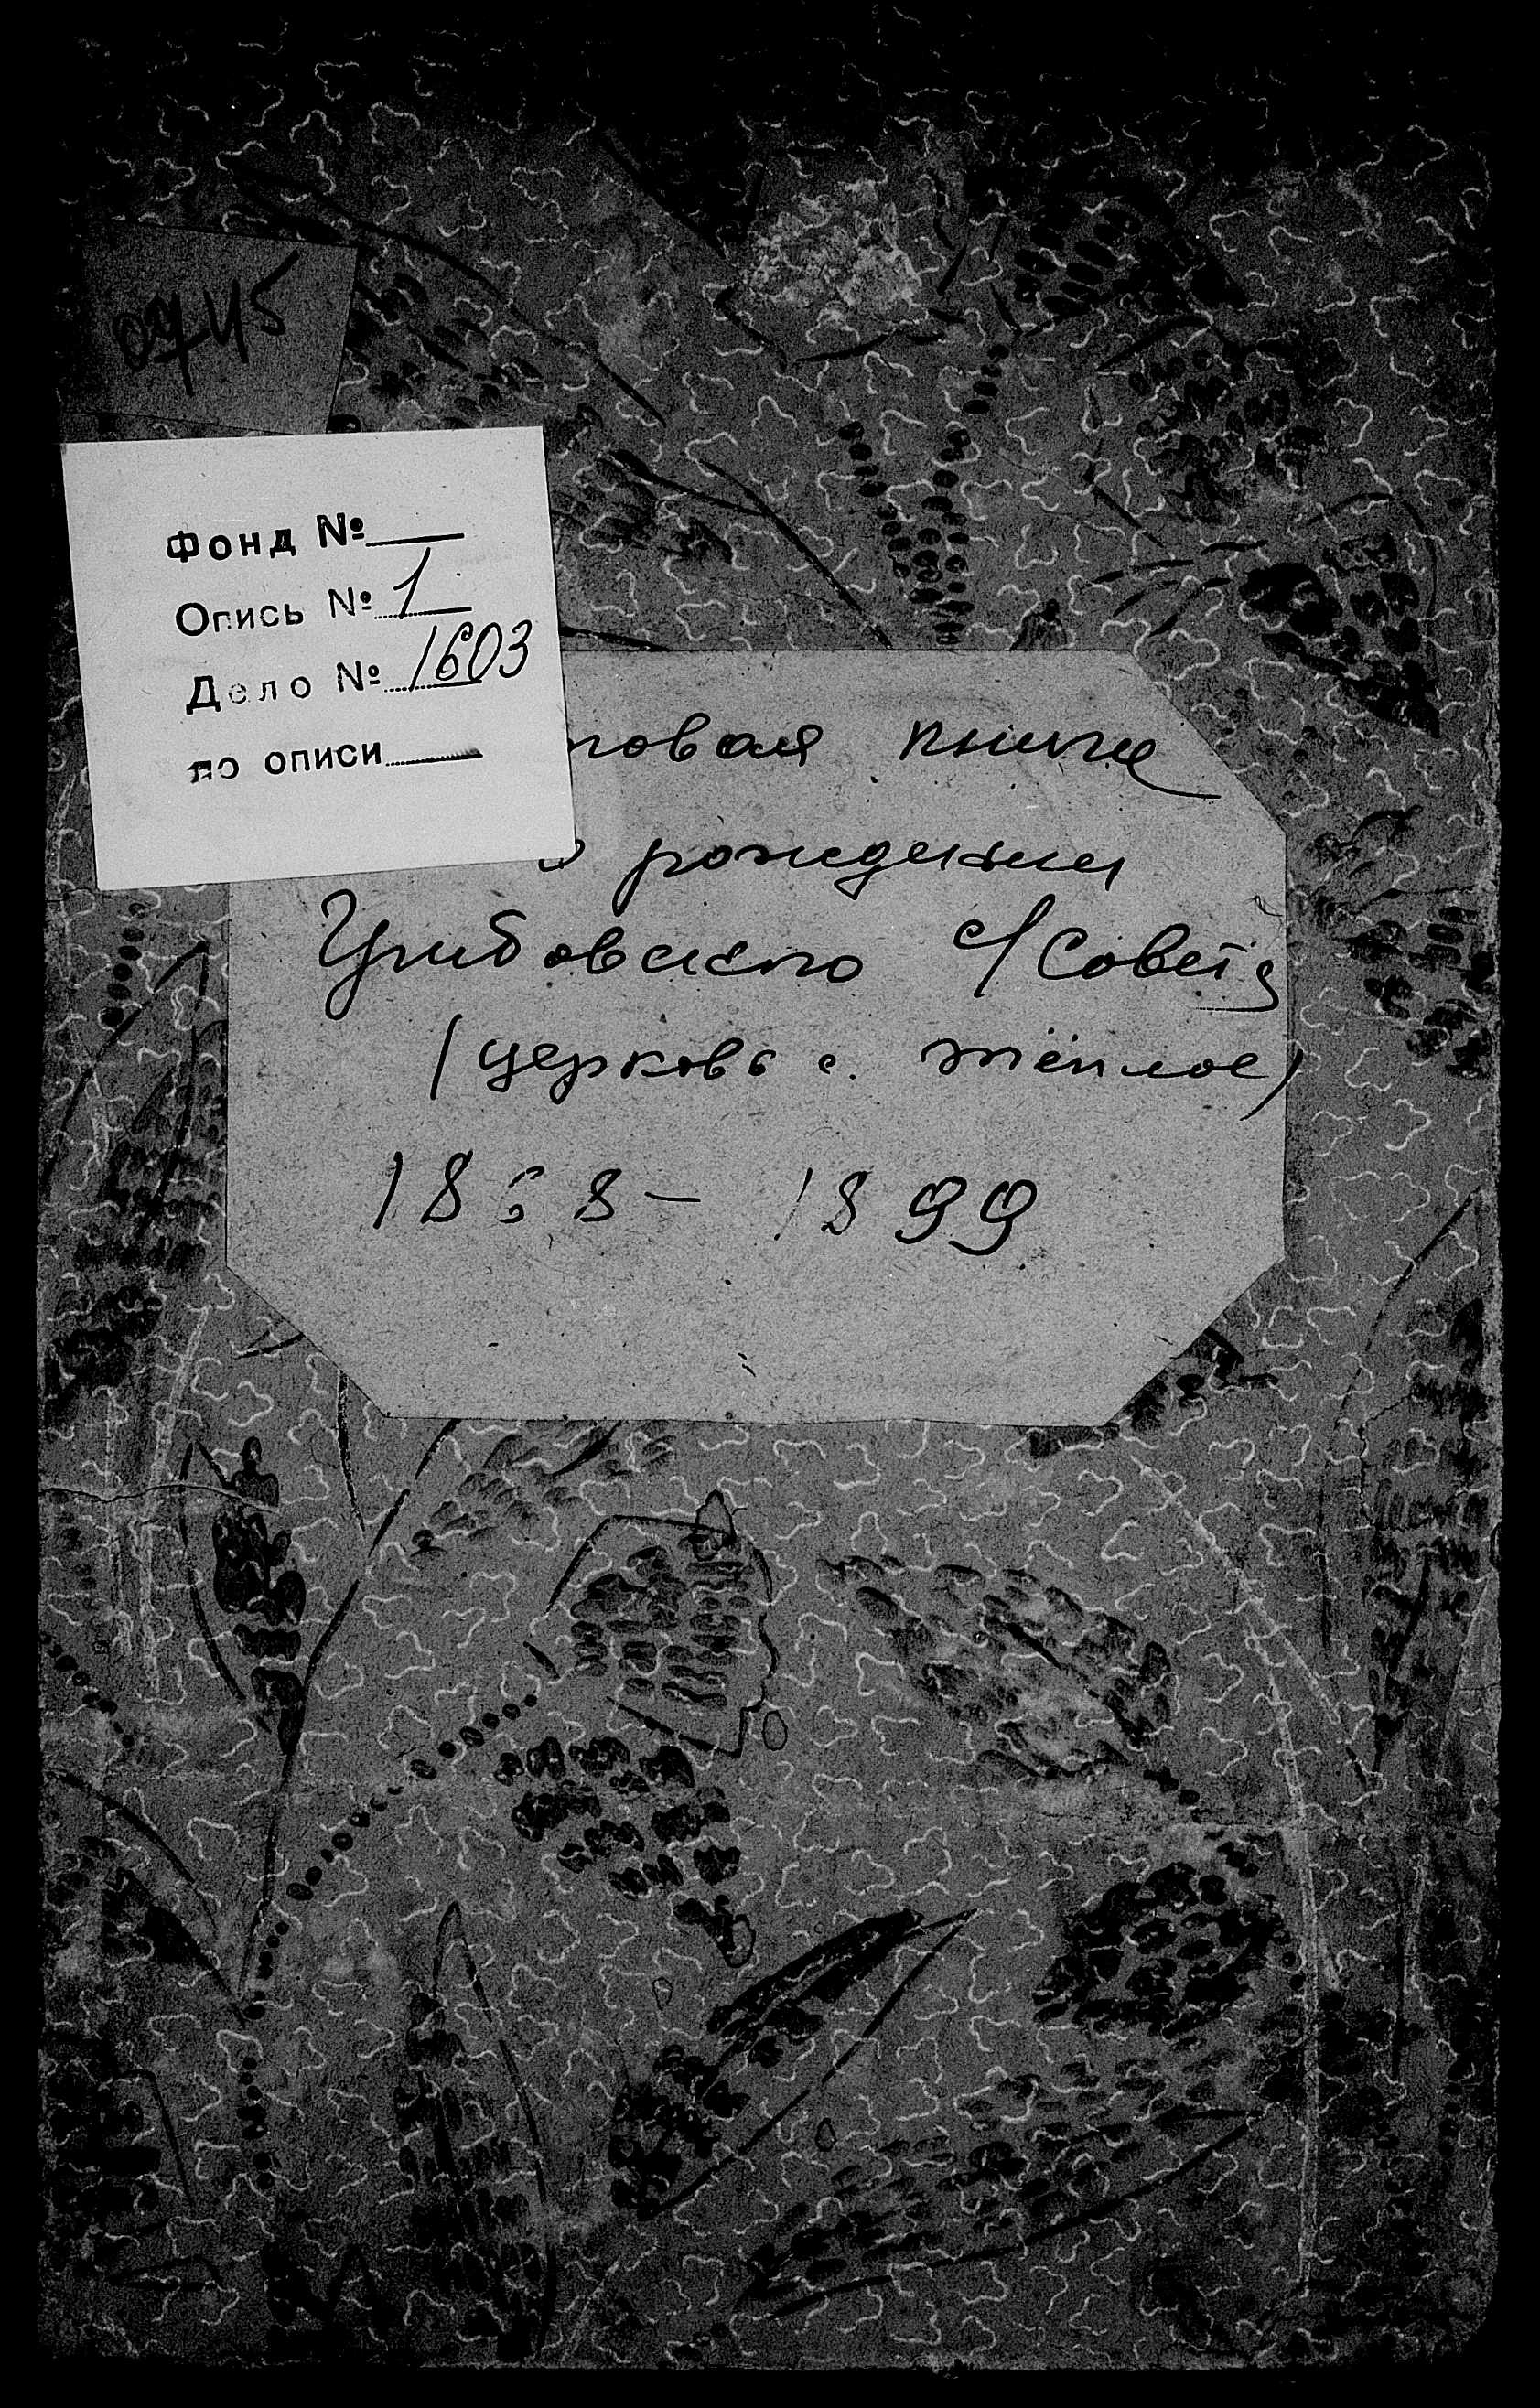 0745
Фонд №
Опись № 1
Дело № 1603
по описи
товая книга
о рождении
Грибовского с/Совета
(церковь с. тёплое)
1868 - 1899